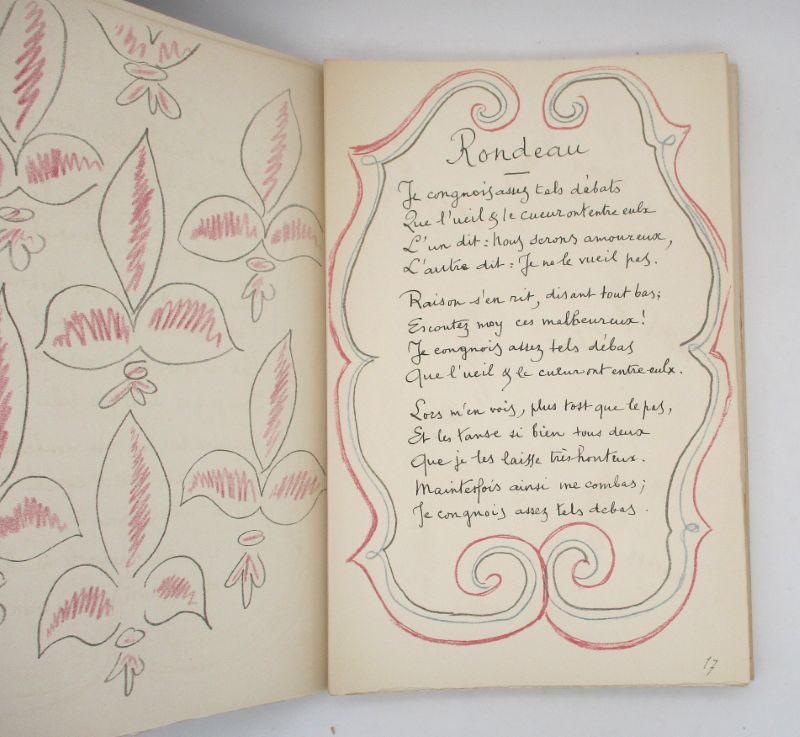 Rondeau
Je congnois assez tels débats
Que l'ueil & le cueur ont entre eulx
L'un dit : Nous serons amoureux,
L'autre dit : Je ne le vueil pas.
Raison s'en rit, disant tout bas;
Escoutez moy ces malheureux!
Je congnois assez tels débas
Que l'ueil & le cueur ont entre-eulx.
Lors m'en vois, plus tost que le pas,
Et les tanse si bien tous deux
Que je les laisse très honteux.
Maintesfois ainsi me combas;
Je congnois assez tels debas.
17